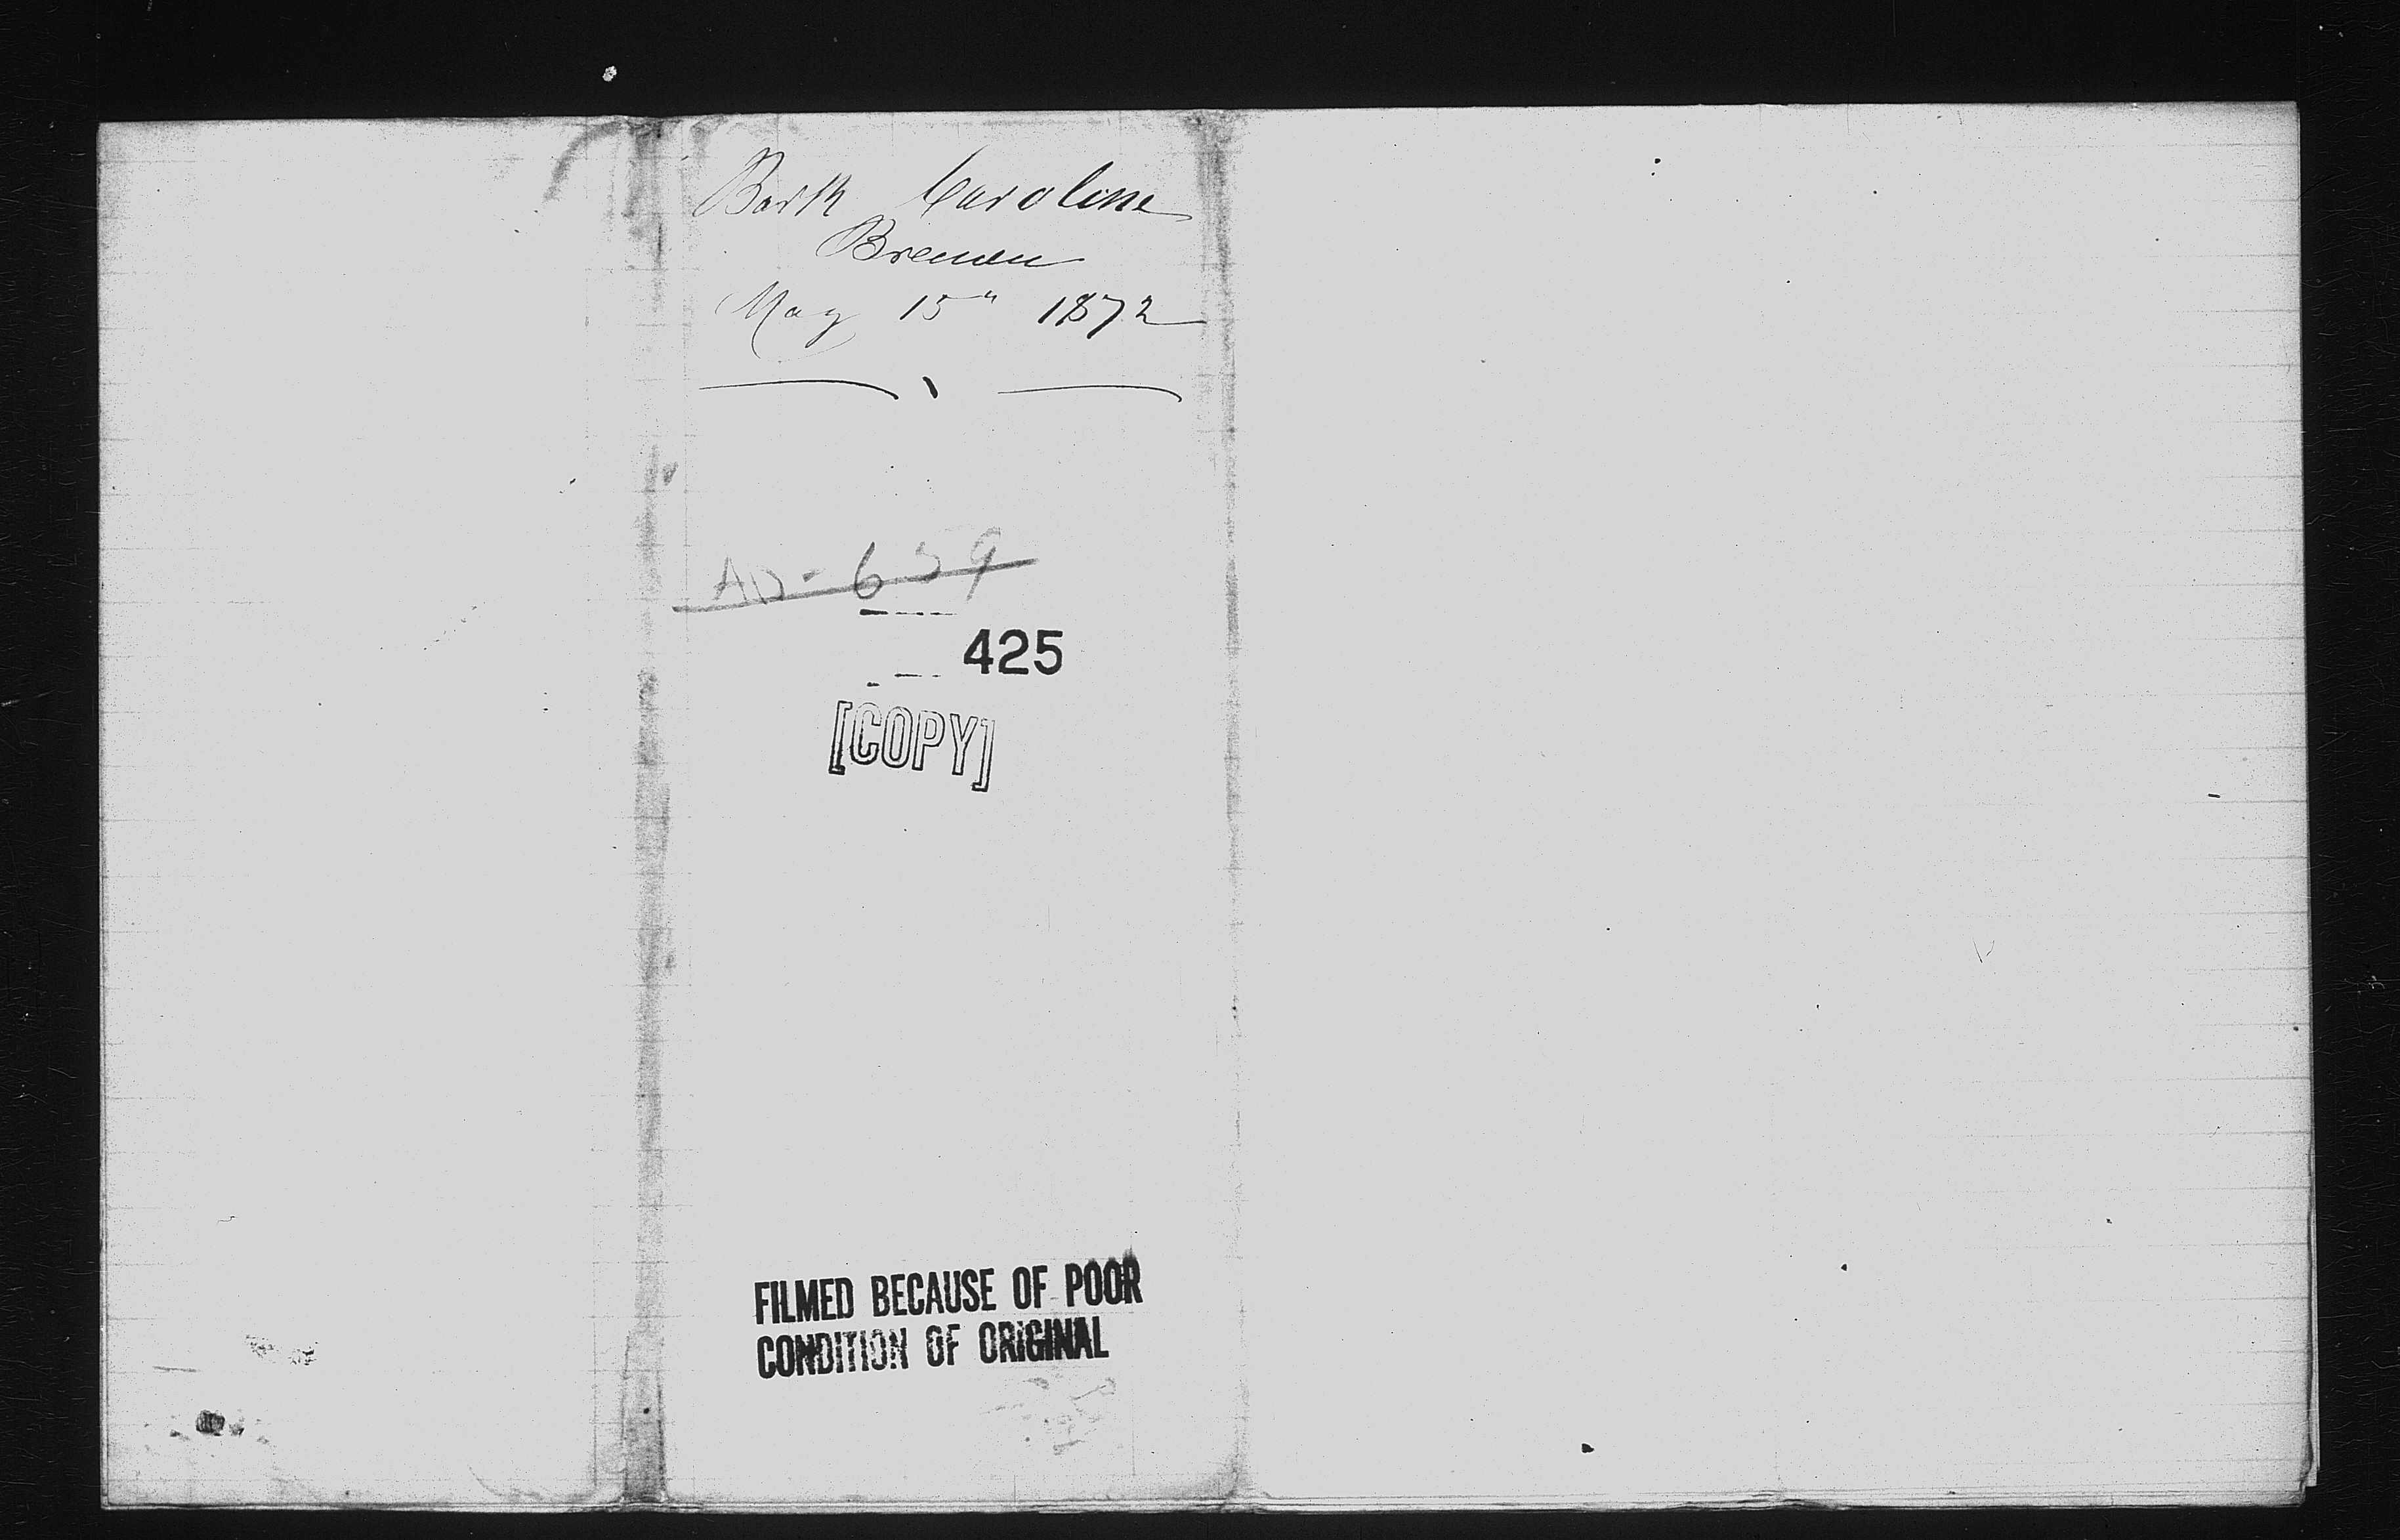 Bark Caroline
Bremen
May 15" 1872
AD-659
425
[COPY]
FILMED BECAUSE OF POOR
CONDITION OF ORIGINAL